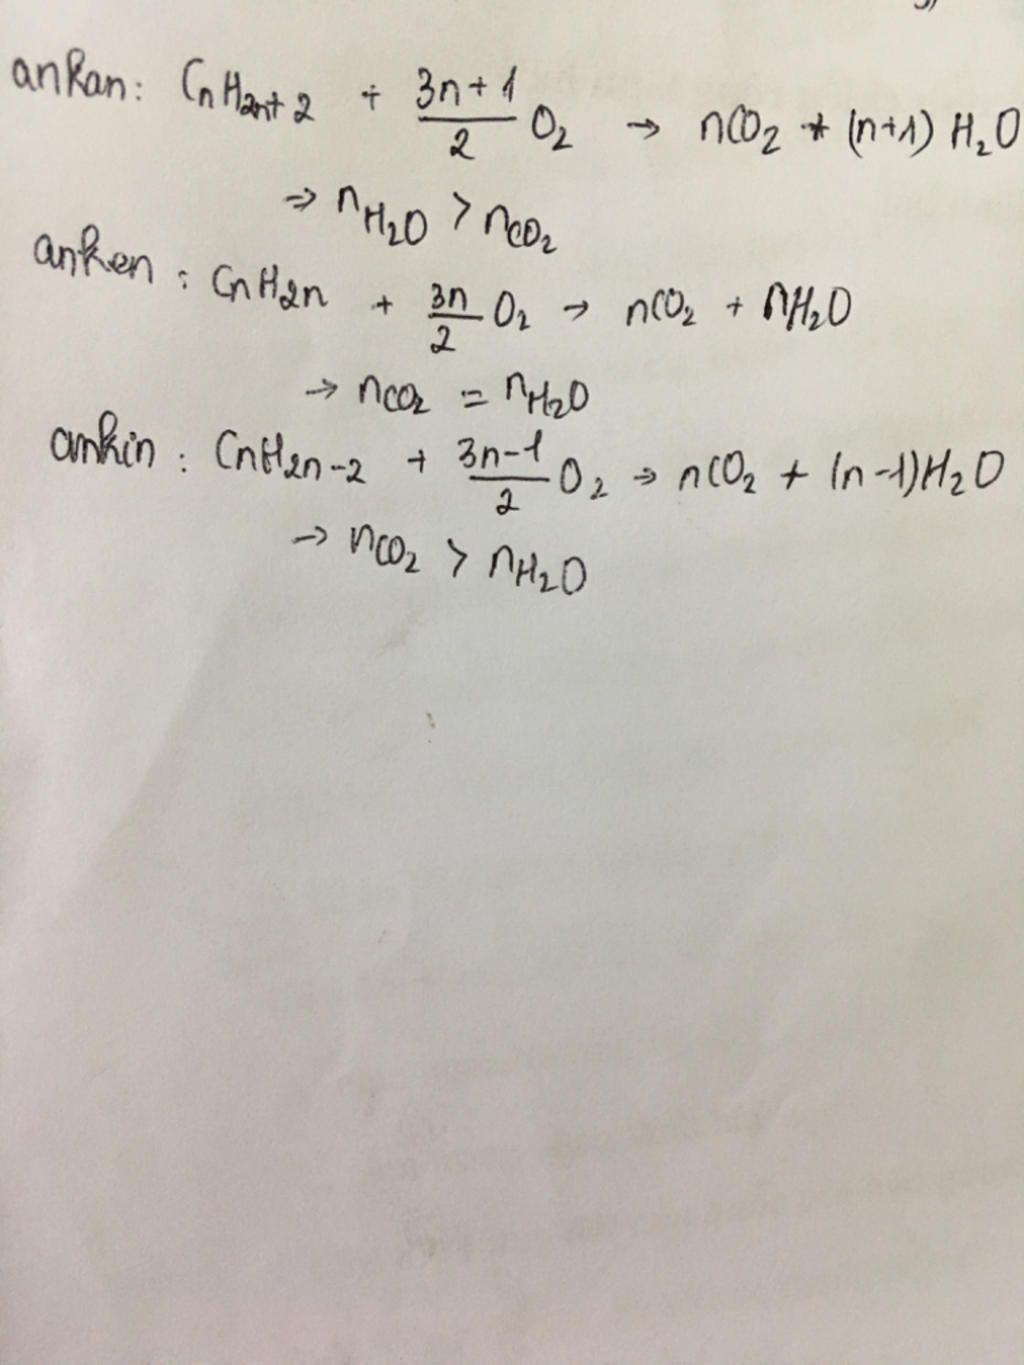 ankan: CnH2n+2 + 3n+1/2 O2 → nCO2 + (n+1) H2O
⇒ nH2O > nCO2
anken : CnH2n + 3n/2 O2 → nCO2 + nH2O
→ nCO2 = nH2O
ankin : CnH2n-2 + 3n-1/2 O2 → nCO2 + (n-1)H2O
→ nCO2 > nH2O